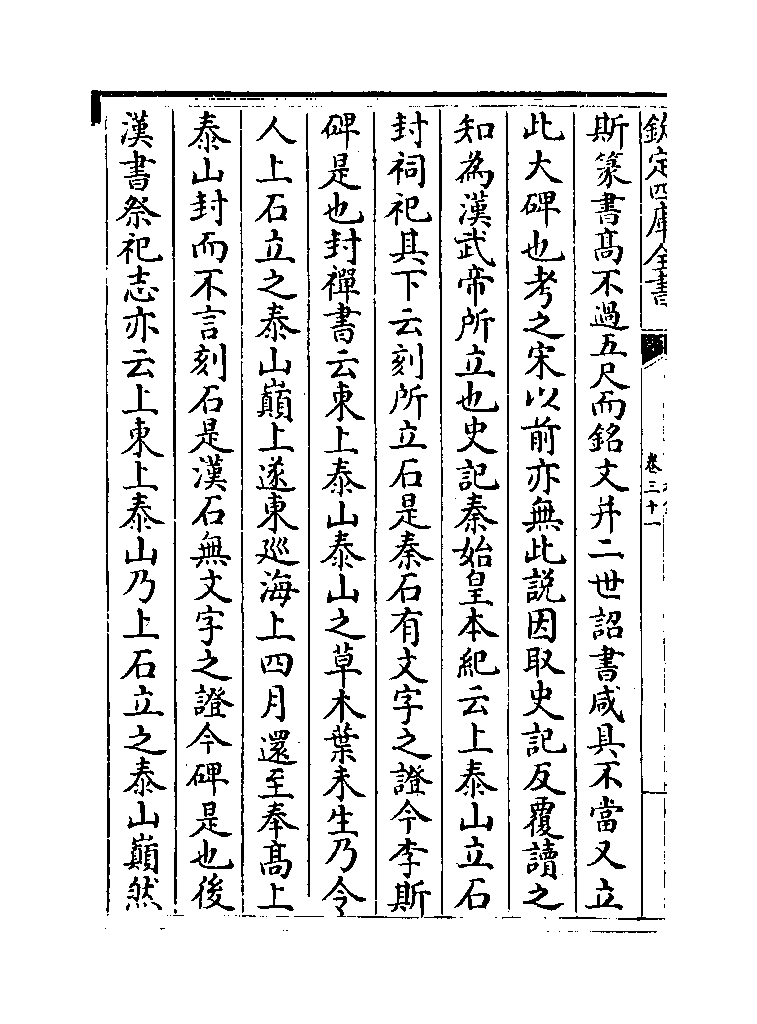 欽定四庫全書
卷三十一
斯篆書髙不過五尺而銘文幷二世詔書咸具不當又立
此大碑也考之宋以前亦無此説因取史記反覆讀之
知為漢武帝所立也史記秦始皇本紀云上泰山立石
封祠祀其下云刻所立石是秦石有文字之證今李斯
碑是也封禪書云東上泰山泰山之草木葉未生乃令
人上石立之泰山巔上遂東廵海上四月還至奉髙上
泰山封而不言刻石是漢石無文字之證今碑是也後
漢書祭祀志亦云上東上泰山乃上石立之泰山巔然